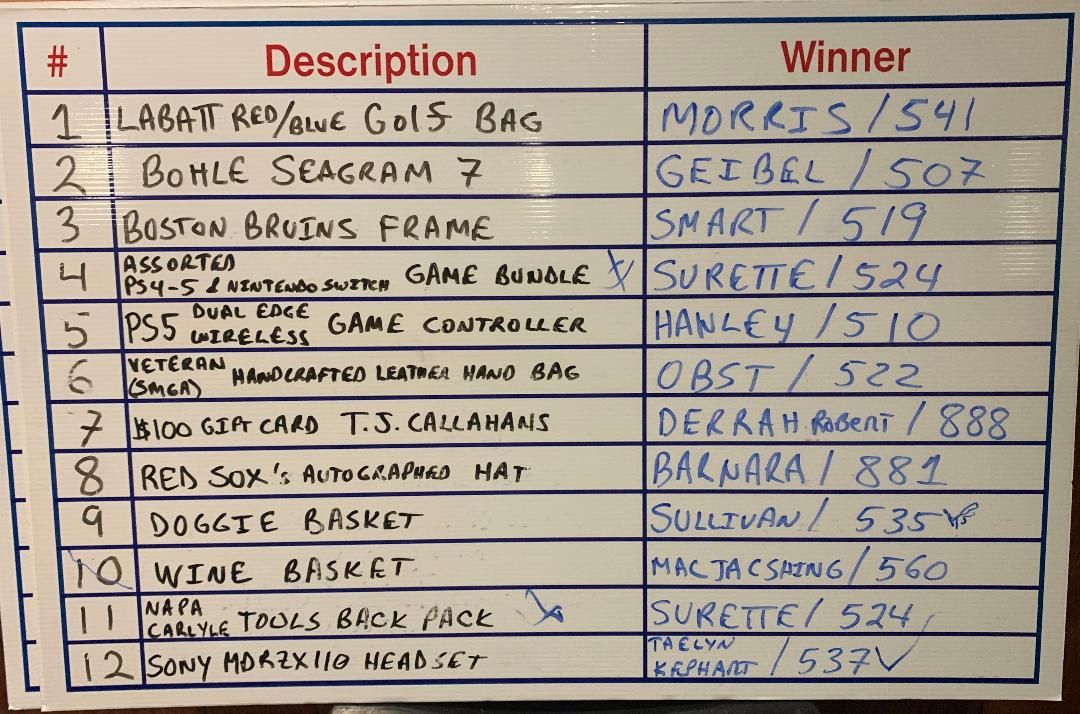 # Description Winner
1 LABATT RED/BLUE GOLF BAG MORRIS / 541
2 BOHLE SEAGRAM 7 GEIBEL / 507
3 BOSTON BRUINS FRAME SMART / 519
4 ASSORTED PS4-5 & NINTENDO SWITCH GAME BUNDLE SURETTE / 524
5 PS5 DUAL EDGE WIRELESS GAME CONTROLLER HANLEY / 510
6 VETERAN (SMGA) HANDCRAFTED LEATHER HAND BAG OBST / 522
7 $100 GIFT CARD T.J. CALLAHANS DERRAH Robert / 888
8 RED SOX's AUTOGRAPHED HAT BARNARA / 881
9 DOGGIE BASKET SULLIVAN / 535
10 WINE BASKET MACJACSHING / 560
11 NAPA CARLYLE TOOLS BACK PACK SURETTE / 524
12 SONY MDRZX110 HEADSET TAELYN KEPHART / 537 ✓